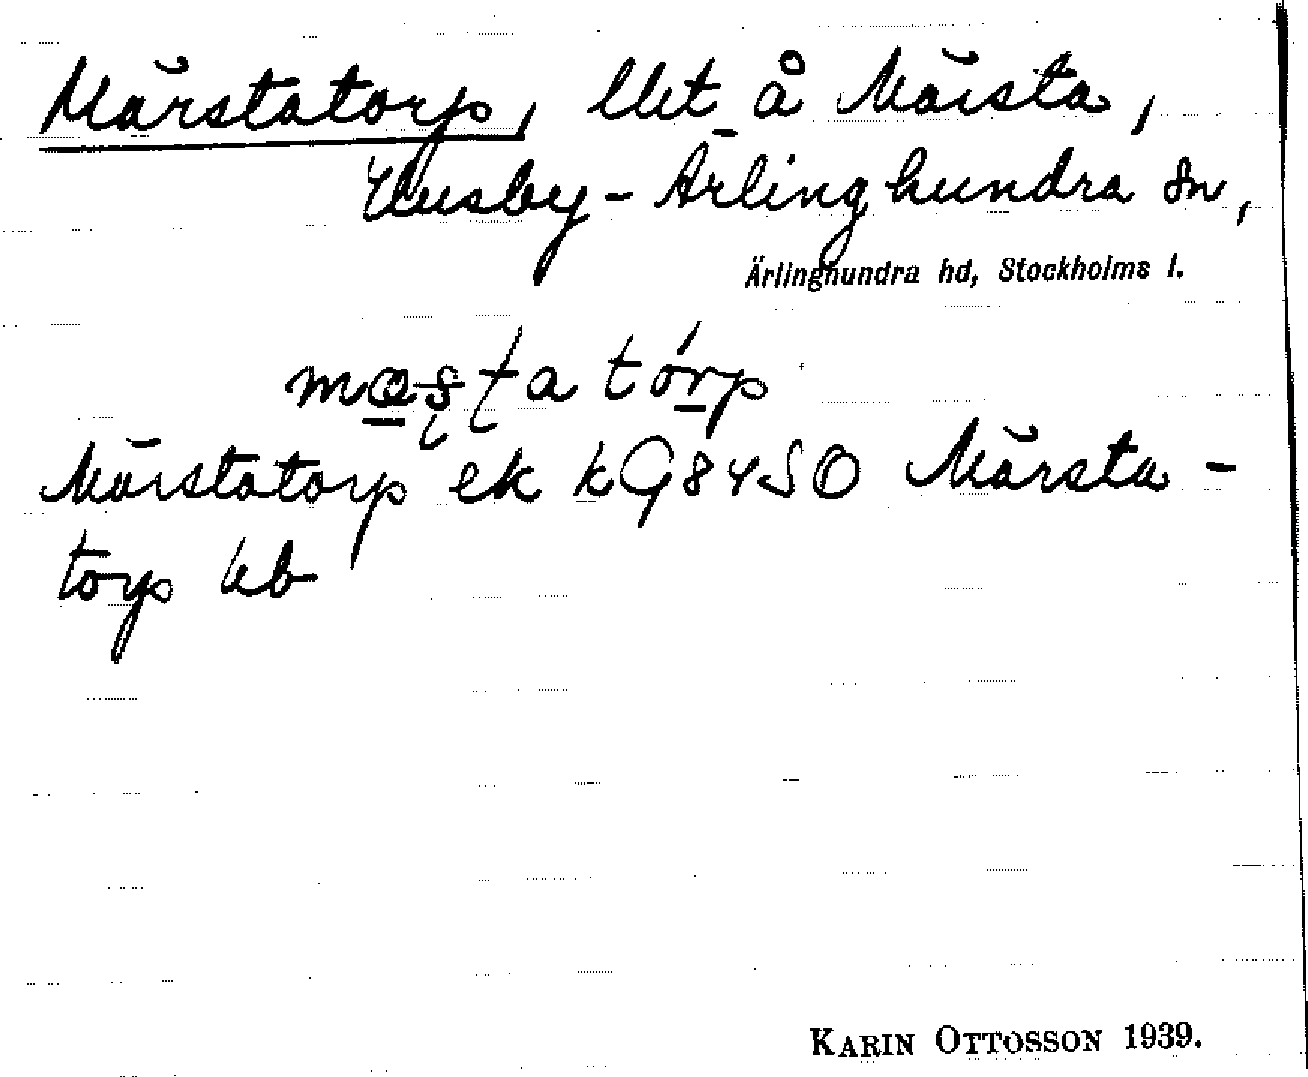 Märstatorp, llet å Märsta,
Husby-Ärlinghundra sn,
Ärlinghundra hd, Stockholms l.
mæʂʈa tórp
Märstatorp ek kG84SO Märsta-
torp kb
KARIN OTTOSSON 1939.